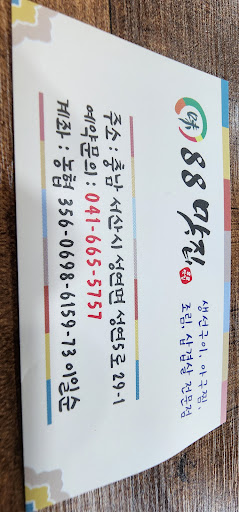 味 88 맛집
생선구이, 아구찜,
조림, 삼겹살 전문점
주소 : 충남 서산시 성연면 성연5로 29-1
예약문의 : 041-665-5757
계좌 : 농협 356-0698-6159-73 이일순